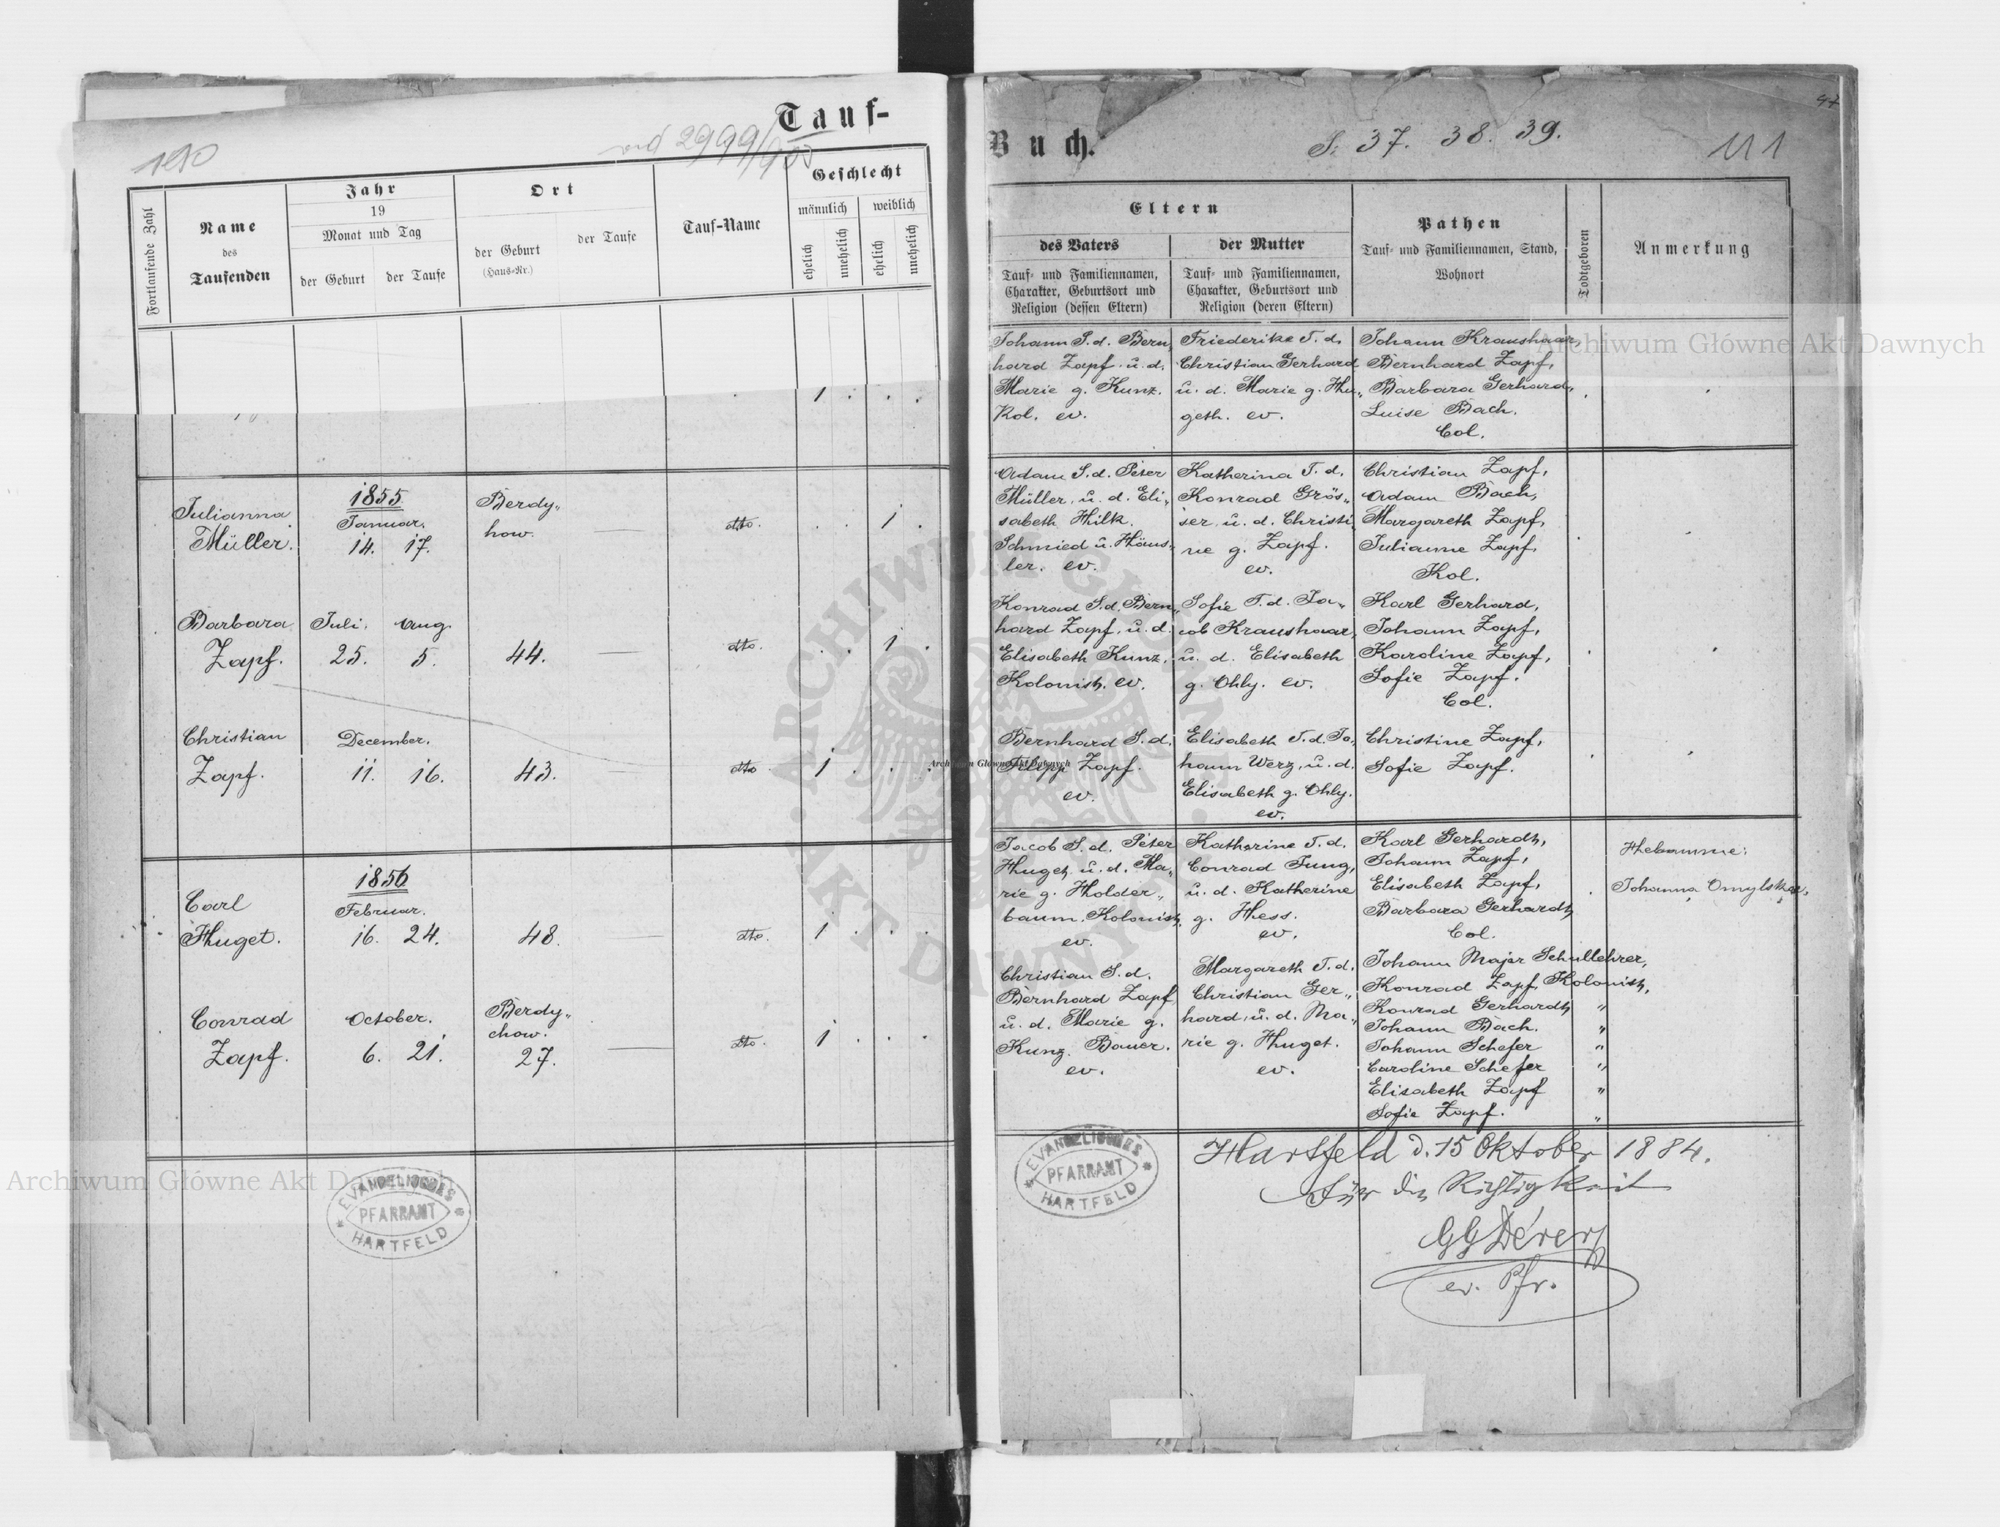 Tauf-
190
ad 2999/900
Fortlaufende Zahl
Name
des
Taufenden
Jahr
19
Monat und Tag
der Geburt
der Taufe
Ort
der Geburt
(Haus-Nr.)
der Taufe
Tauf-Name
Geschlecht
männlich
weiblich
ehelich
unehelich
ehelich
unehelich
1 . . .
Julianna
Müller.
1855.
Januar.
14. 17.
Berdy„
how.
dto.
. . 1 .
Barbara
Zapf.
Juli. Aug.
25. 5.
44.
dto.
. . 1 .
Christian
Zapf.
December.
11. 16.
43.
dto.
1 . . .
Carl
Huget.
1856
Februar.
16. 24.
48.
dto.
1 . . .
Conrad
Zapf.
October.
6. 21.
Berdy„
chow.
27.
dto.
1 . . .
EVANGELISCHES
PFARRAMT
HARTFELD
Buch.
S. 37. 38. 39.
111
Eltern
des Vaters
Tauf- und Familiennamen,
Charakter, Geburtsort und
Religion (dessen Eltern)
der Mutter
Tauf- und Familiennamen,
Charakter, Geburtsort und
Religion (deren Eltern)
Pathen
Tauf- und Familiennamen, Stand,
Wohnort
Todtgeboren
Anmerkung
Johann S. d. Bern„
hard Zapf. u. d.
Marie g. Kunz.
Kol. ev.
Friederike T. d.
Christian Gerhard
u. d. Marie g. Hu„
geth. ev.
Johann Kraushaar,
Bernhard Zapf,
Barbara Gerhard,
Luise Bach.
Col.
Adam S. d. Peter
Müller, u. d. Eli„
sabeth Hilk.
Schmied u. Häus„
ler. ev.
Katherina T. d.
Konrad Grös„
ser, u. d. Christi
ne g. Zapf.
ev.
Christian Zapf,
Adam Bach,
Margareth Zapf,
Julianne Zapf,
Kol.
Konrad S. d. Bern„
hard Zapf, u. d.
Elisabeth Kunz,
Kolonist. ev.
Sofie T. d. Ja„
cob Kraushaar,
u. d. Elisabeth
g. Ohly. ev.
Karl Gerhard,
Johann Zapf,
Karoline Zapf,
Sofie Zapf.
Col.
Bernhard S. d.
Filipp Zapf.
ev.
Elisabeth T. d. Jo„
hann Werz, u. d.
Elisabeth g. Ohly.
ev.
Christine Zapf,
Sofie Zapf.
Jacob S. d. Peter
Huget, u. d. Ma„
rie g. Holder„
baum. Kolonist.
ev.
Katherine T. d.
Conrad Jung,
u. d. Katherine
g. Hess.
ev.
Karl Gerhardt,
Johann Zapf,
Elisabeth Zapf,
Barbara Gerhardt,
Col.
Hebamme:
Johanna
Christian S. d.
Bernhard Zapf
u. d. Marie g.
Kunz. Bauer.
ev.
Margareth T. d.
Christian Ger„
hard, u. d. Ma„
rie g. Huget.
ev.
Johann Majer Schullehrer,
Konrad Zapf, Kolonist,
Konrad Gerhardt, "
Johann Bach. "
Johann Schefer "
Caroline Schefer "
Elisabeth Zapf "
Sofie Zapf. "
EVANGELISCHES
PFARRAMT
HARTFELD
Hartfeld d. 15 Oktober 1884.
Für die Richtigkeit
ev. Pfr.
Archiwum Główne Akt Dawnych
Archiwum Główne Akt Dawnych
Archiwum Główne Akt Dawnych
ARCHIWUM GŁÓWNE AKT DAWNYCH